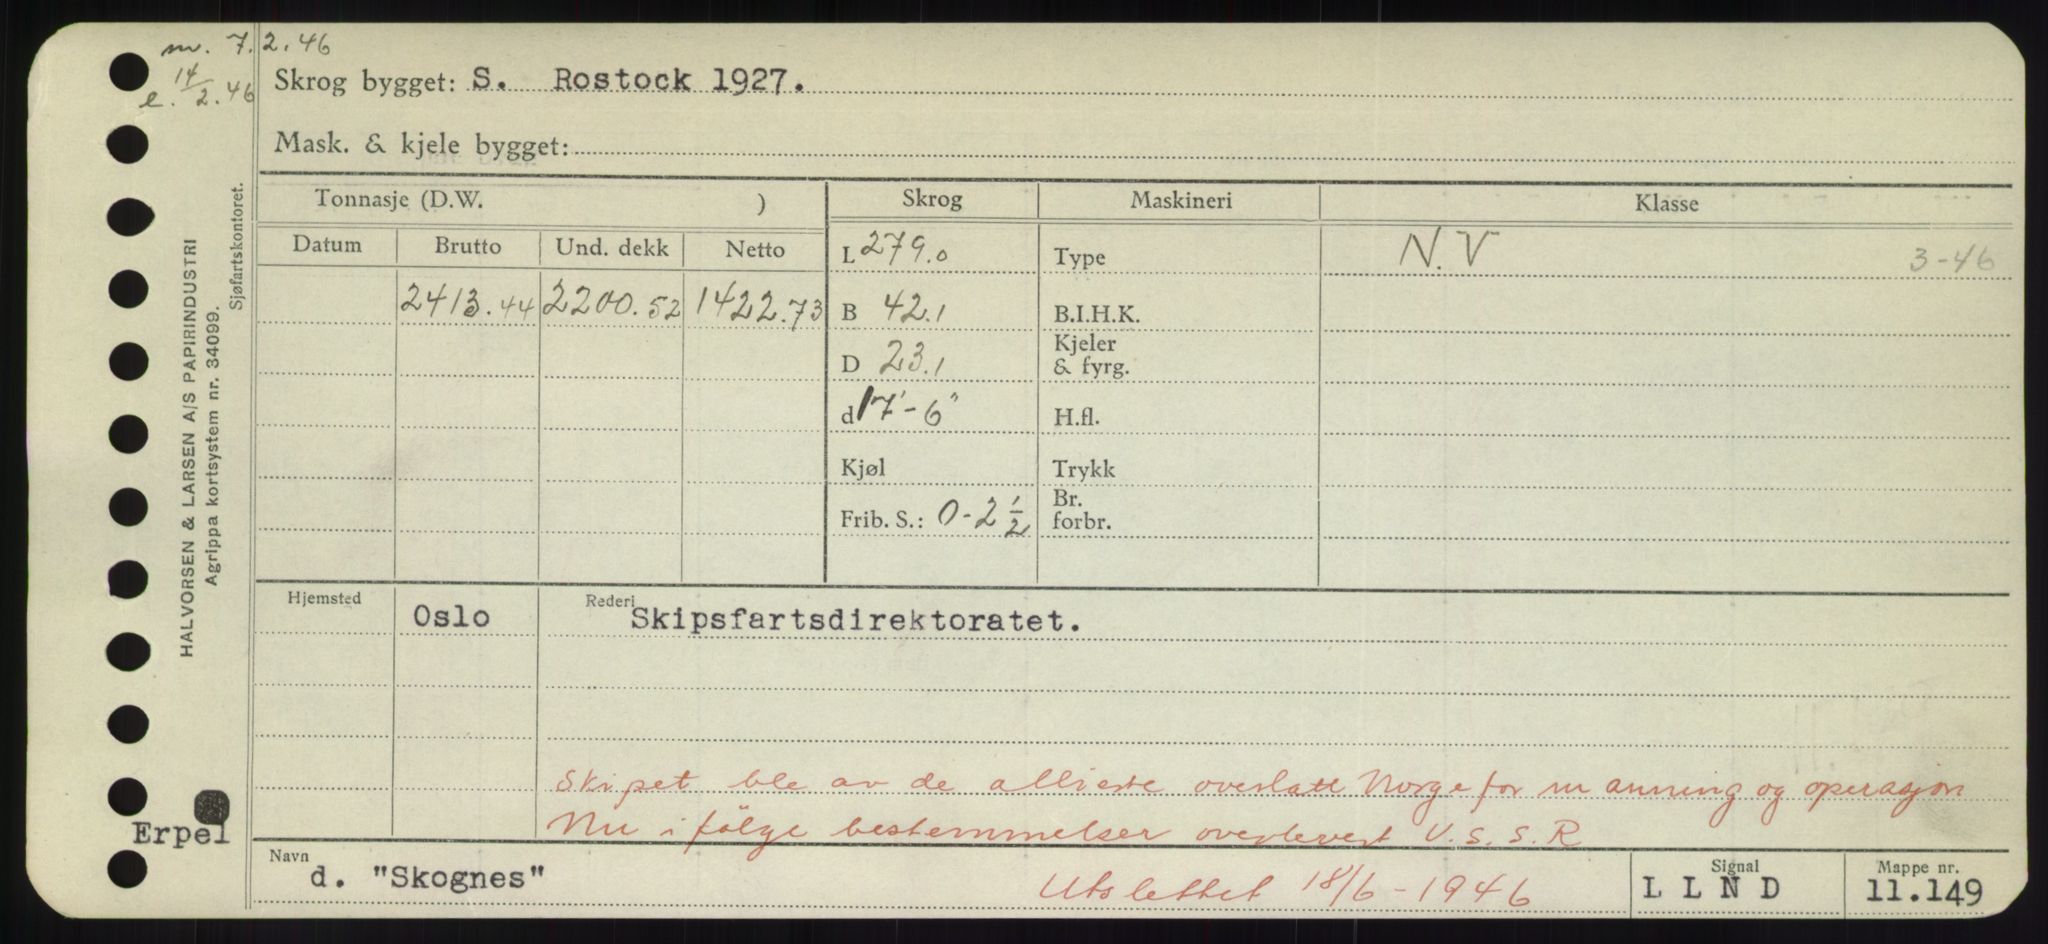 m. 7.2.46
e. 14/2.46
Skrog bygget: S. Rostock 1927.
Mask. & kjele bygget:
Tonnasje (D.W. )
Skrog
Maskineri
Klasse
Datum
Brutto
Und. dekk
Netto
L 279.0
Type
N.V
3-46
2413.44
2200.52
1422.73
B 42.1
B.I.H.K.
D 23.1
Kjeler
& fyrg.
d 17'-6"
H.fl.
Kjøl
Trykk
Frib. S.: 0-2 1/2
Br.
forbr.
Hjemsted
Oslo
Rederi
Skipsfartsdirektoratet.
Skipet ble av de allierte overlatt Norge for manning og operasjon
Nu i følge bestemmelser overlevert U.S.S.R
Erpel
Navn
d. "Skognes"
Utslettet 18/6-1946
Signal
L L N D
Mappe nr.
11.149
HALVORSEN & LARSEN A/S PAPIRINDUSTRI
Agrippa kortsystem nr. 34099.
Sjøfartskontoret.